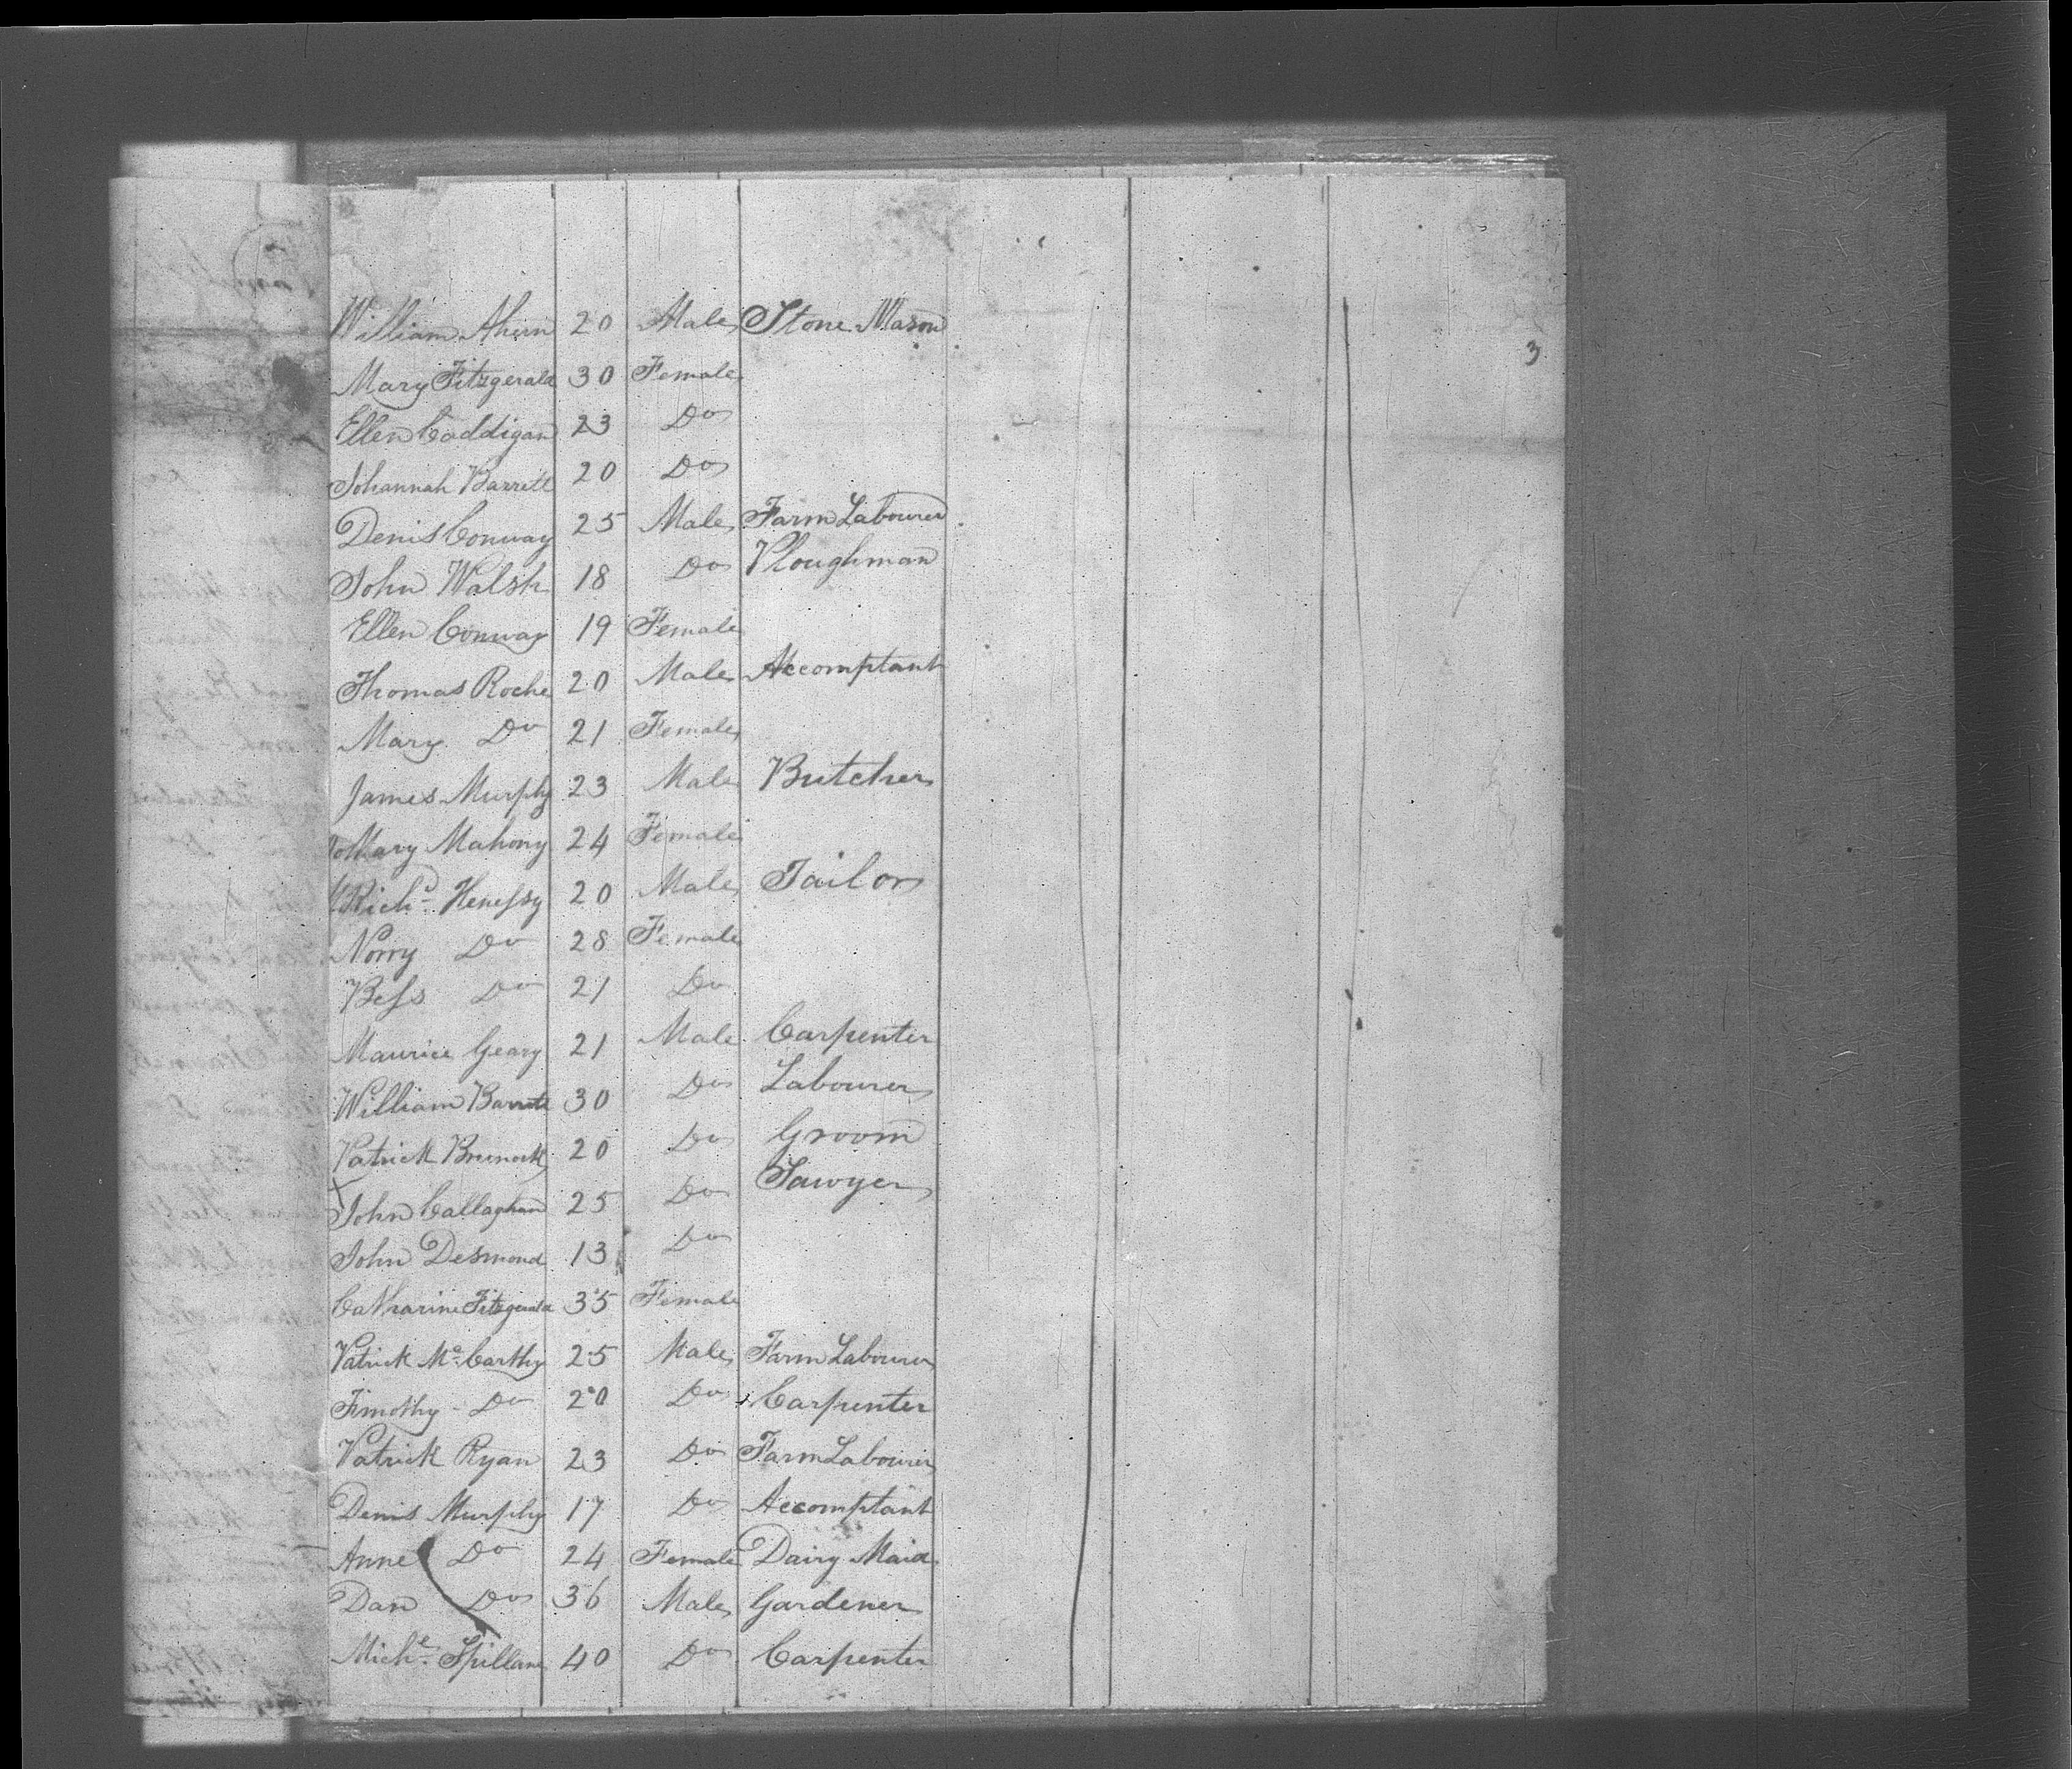 William Ahern 20 Male Stone Mason
3
Mary Fitzgerald 30 Female
Ellen Coddigan 23 Do
Johannah Barrett 20 Do
Denis Conway 25 Male Farm Labourer
John Walsh 18 Do Ploughman
Ellen Conway 19 Female
Thomas Roche 20 Male Accomptant
Mary Do 21 Female
James Murphy 23 Male Butcher
Mary Mahony 24 Female
Richd Henessy 20 Male Tailor
Norry Do 28 Female
Bess Do 21 Do
Maurice Geary 21 Male Carpenter
William Barrett 30 Do Labourer
Patrick 20 Do Groom
John Callaghan 25 Do Sawyer
John Desmond 13 Do
Catharine Fitzgerald 35 Female
Patrick McCarthy 25 Male Farm Labourer
Timothy - Do 20 Do Carpenter
Patrick Ryan 23 Do Farm Labourer
Denis Murphy 17 Do Accomptant
Anne Do 24 Female Dairy Maid
Dan Do 36 Male Gardener
Michl Spillane 40 Do Carpenter